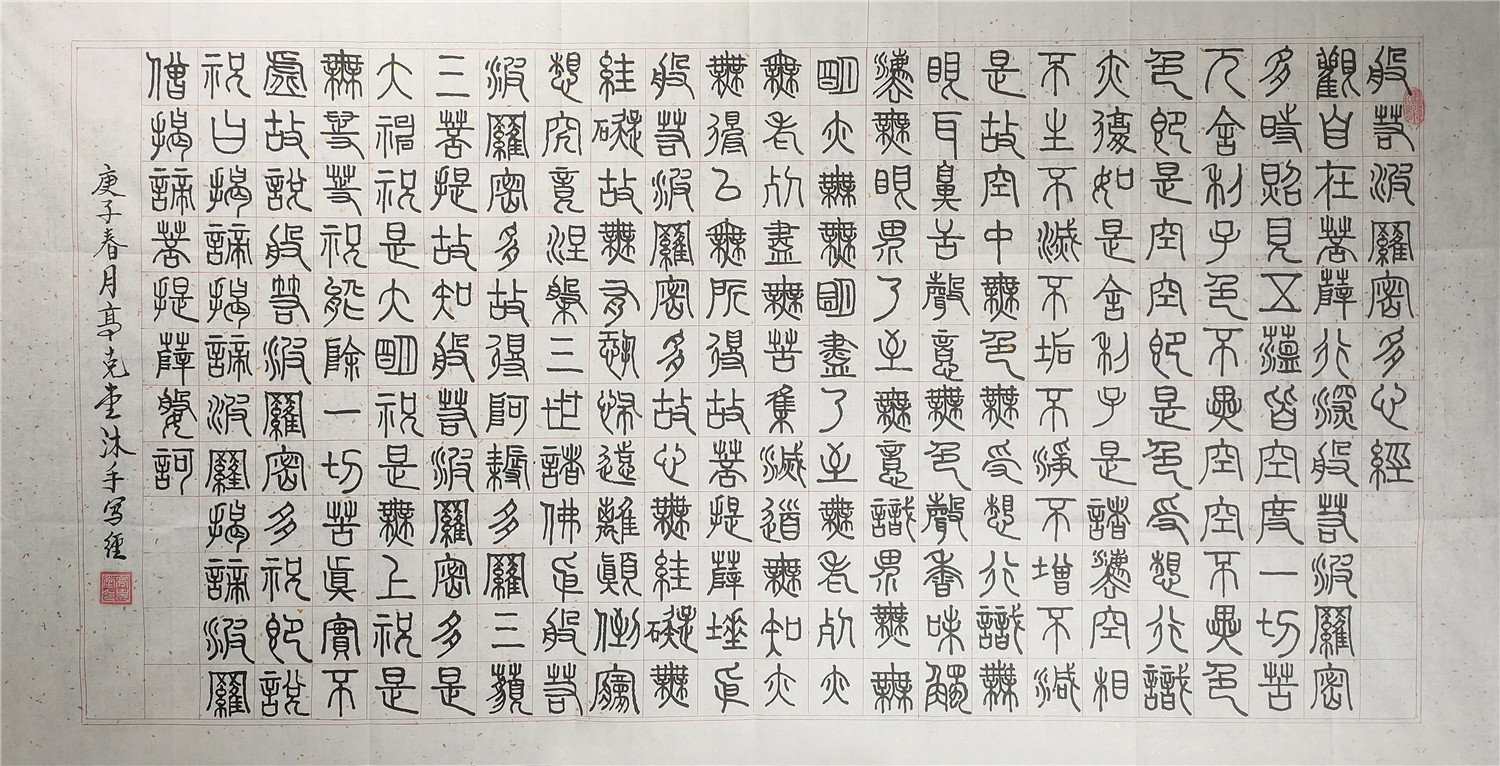 般若波羅密多心經
觀自在菩薩行深般若波羅密
多時照見五蘊皆空度一切苦
厄舍利子色不異空空不異色
色即是空空即是色受想行識
亦復如是舍利子是諸灋空相
不生不滅不垢不淨不增不減
是故空中無色無受想行識無
眼耳鼻舌聲意無色聲香味觸
灋無眼界乃至無意識界無無
明亦無無明盡乃至無老死亦
無老死盡無苦集滅道無知亦
無得以無所得故菩提薩埵依
般若波羅密多故心無絓礙無
絓礙故無有恐怖遠離顛倒夢
想究竟涅槃三世諸佛依般若
波羅密多故得阿耨多羅三藐
三菩提故知般若波羅密多是
大神祝是大明祝是無上祝是
無等等祝能除一切苦真實不
虛故說般若波羅密多祝即說
祝曰揭諦揭諦波羅揭諦波羅
僧揭諦菩提薩婆訶
庚子春月亭克堂沐手写經